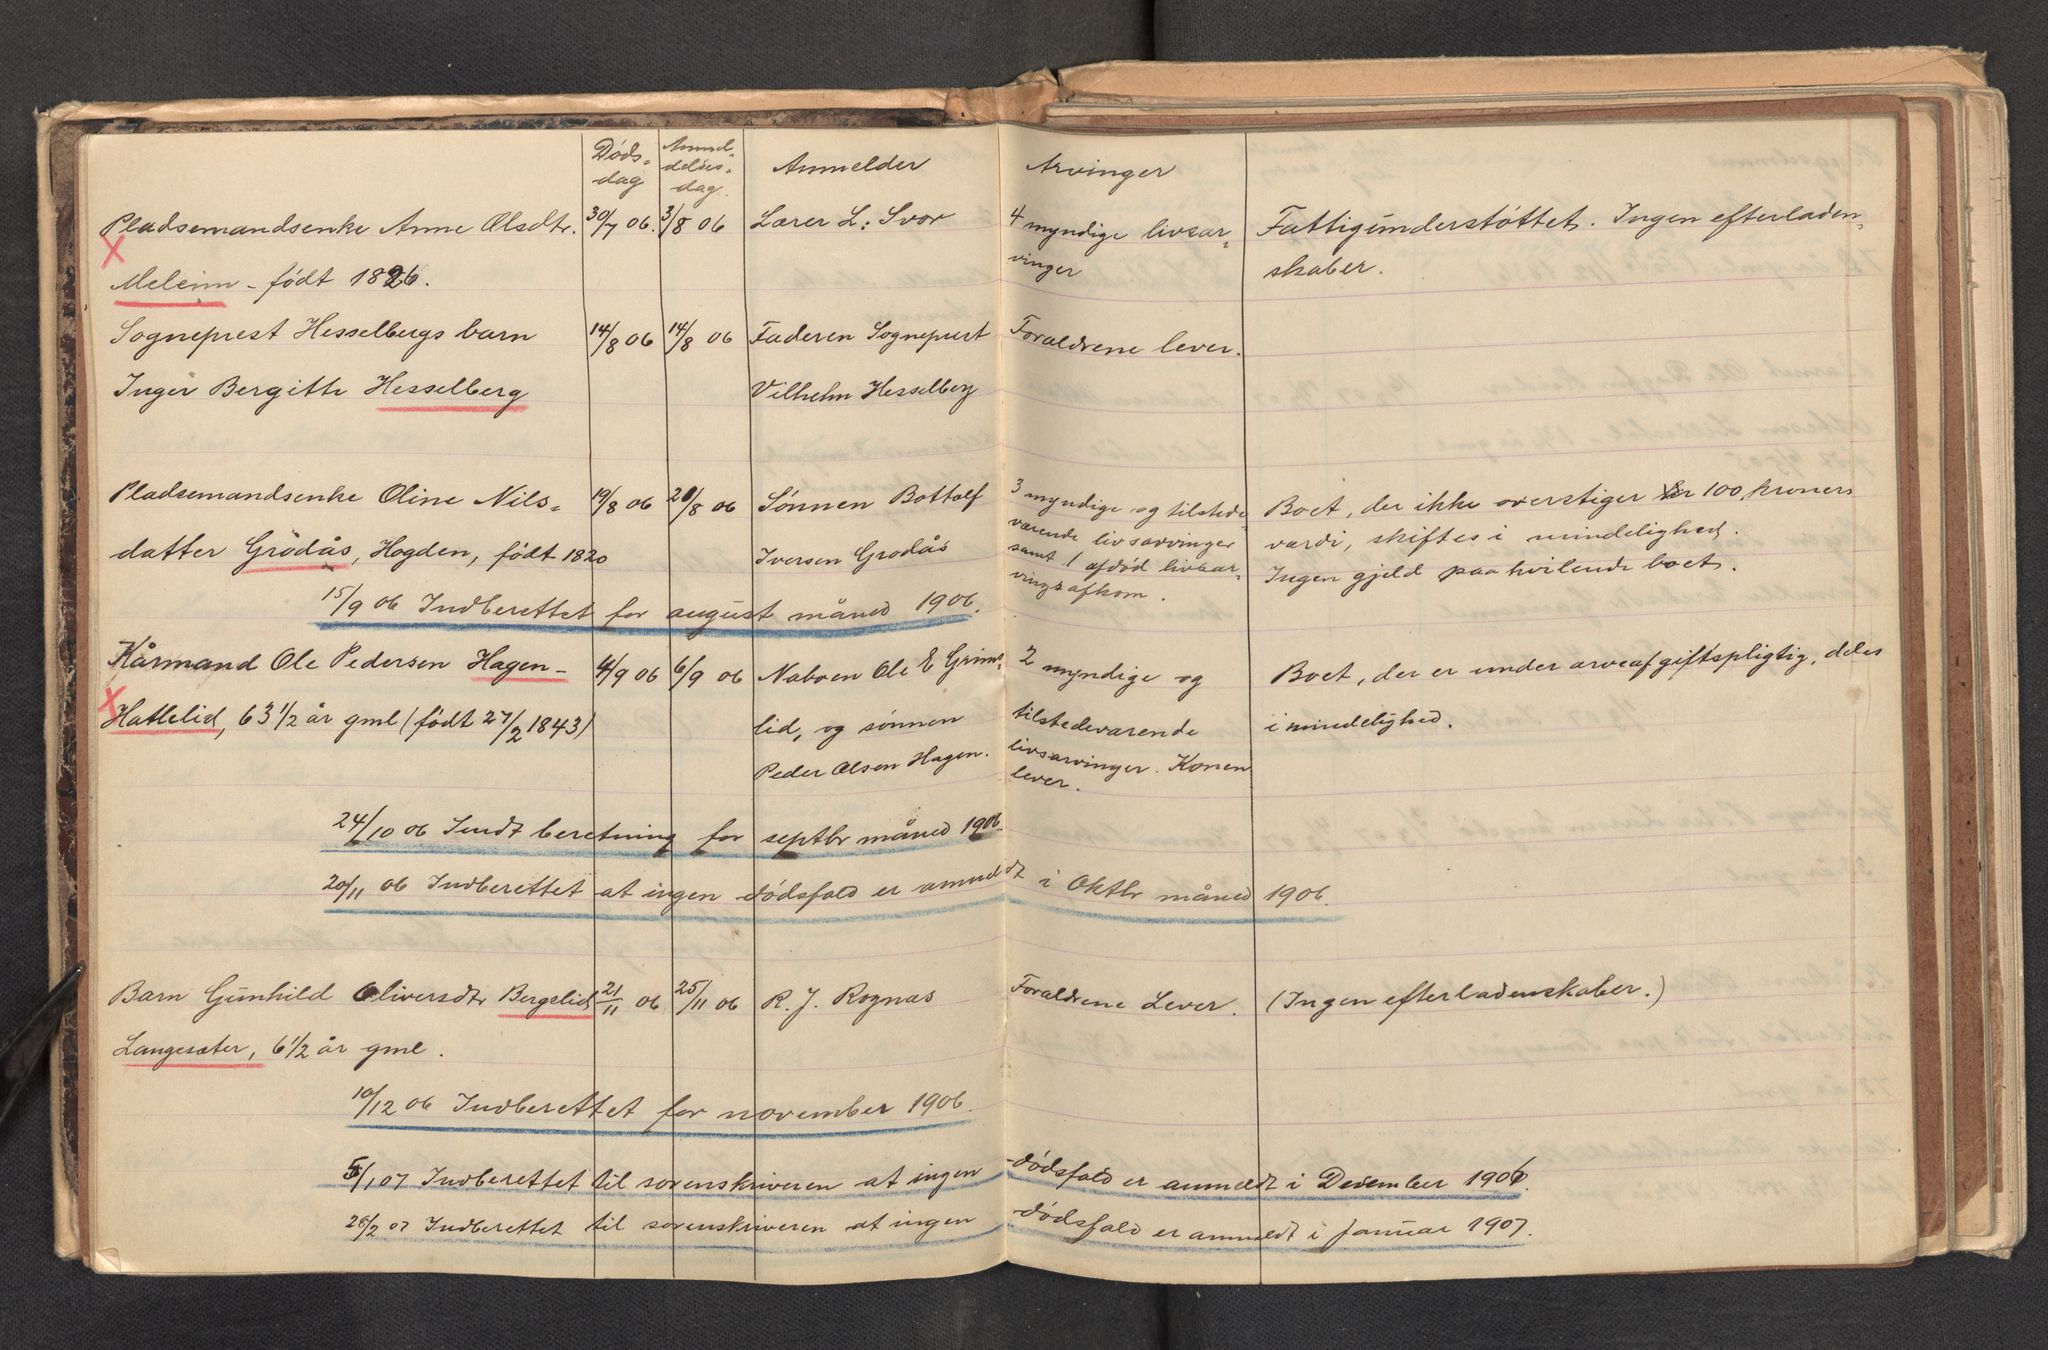 Døds- Anmel- Anmelder Arvinger
dag deldes-
dag.
Pladsemandsenke Anne Olsdtr. 30/7 06. 3/8 06 Lærer L: Svor 4 myndige livsar- Fattigunderstøttet. Ingen efterladen-
Meleim - født 1826. vinger skaber.
Sogneprest Hesselbergs barn 14/8 06 14/8 06 Faderen Sogneprest Forældrene lever.
Inger Bergitte Hesselberg Vilhelm Hesselberg
Pladsemandsenke Oline Nils- 19/8 06 20/8 06 Sønnen Bottolf 3 myndige og tilstede- Boet, der ikke overstiger 100 kroners
datter Grodås, Hogden, født 1820 Iversen Grodås værende livsarvinger værdi, skiftes i mindelighed.
samt 1 afdød livsar- Ingen gjeld paahvilende boet.
vings afkom.
15/9 06 Indberettet for august måned 1906.
Kårmand Ole Pedersen Hagen- 4/9 06 6/9 06 Naboen Ole E Grims- 2 myndige og Boet, der er under arveafgiftspligtig, deles
Hatlelid, 63 1/2 år gml (født 27/2 1843) lid, og sønnen tilstedeværende i mindelighed.
Peder Olsen Hagen. livsarvinger. Konen
lever.
24/10 06 Indt beretning for septbr måned 1906.
20/11 06 Indberettet at ingen dødsfald er anmeldt i Oktbr måned 1906.
Barn Gunhild Oliversdtr Bergslid 21/11 06 25/11 06 R. J. Rognas Forældrene Lever. (Ingen efterladenskaber.)
Langesæter, 6 1/2 år gml.
10/12 06 Indberettet for november 1906.
5/1 07 Indberettet til sorenskriveren at ingen dødsfald er anmeldt i December 1906.
26/2 07 Indberettet til sorenskriveren at ingen dødsfald er anmeldt i Januar 1907.